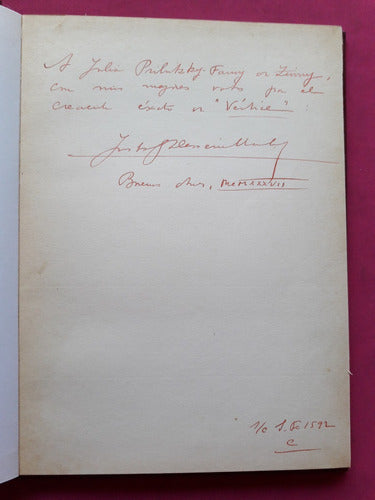 A Julia Prilutzky Farny de Zinny,
con mis mejores votos por el
creciente éxito de "Vértice"
Buenos Aires, MCMXXXVII
s/c S. Fe 1592
C